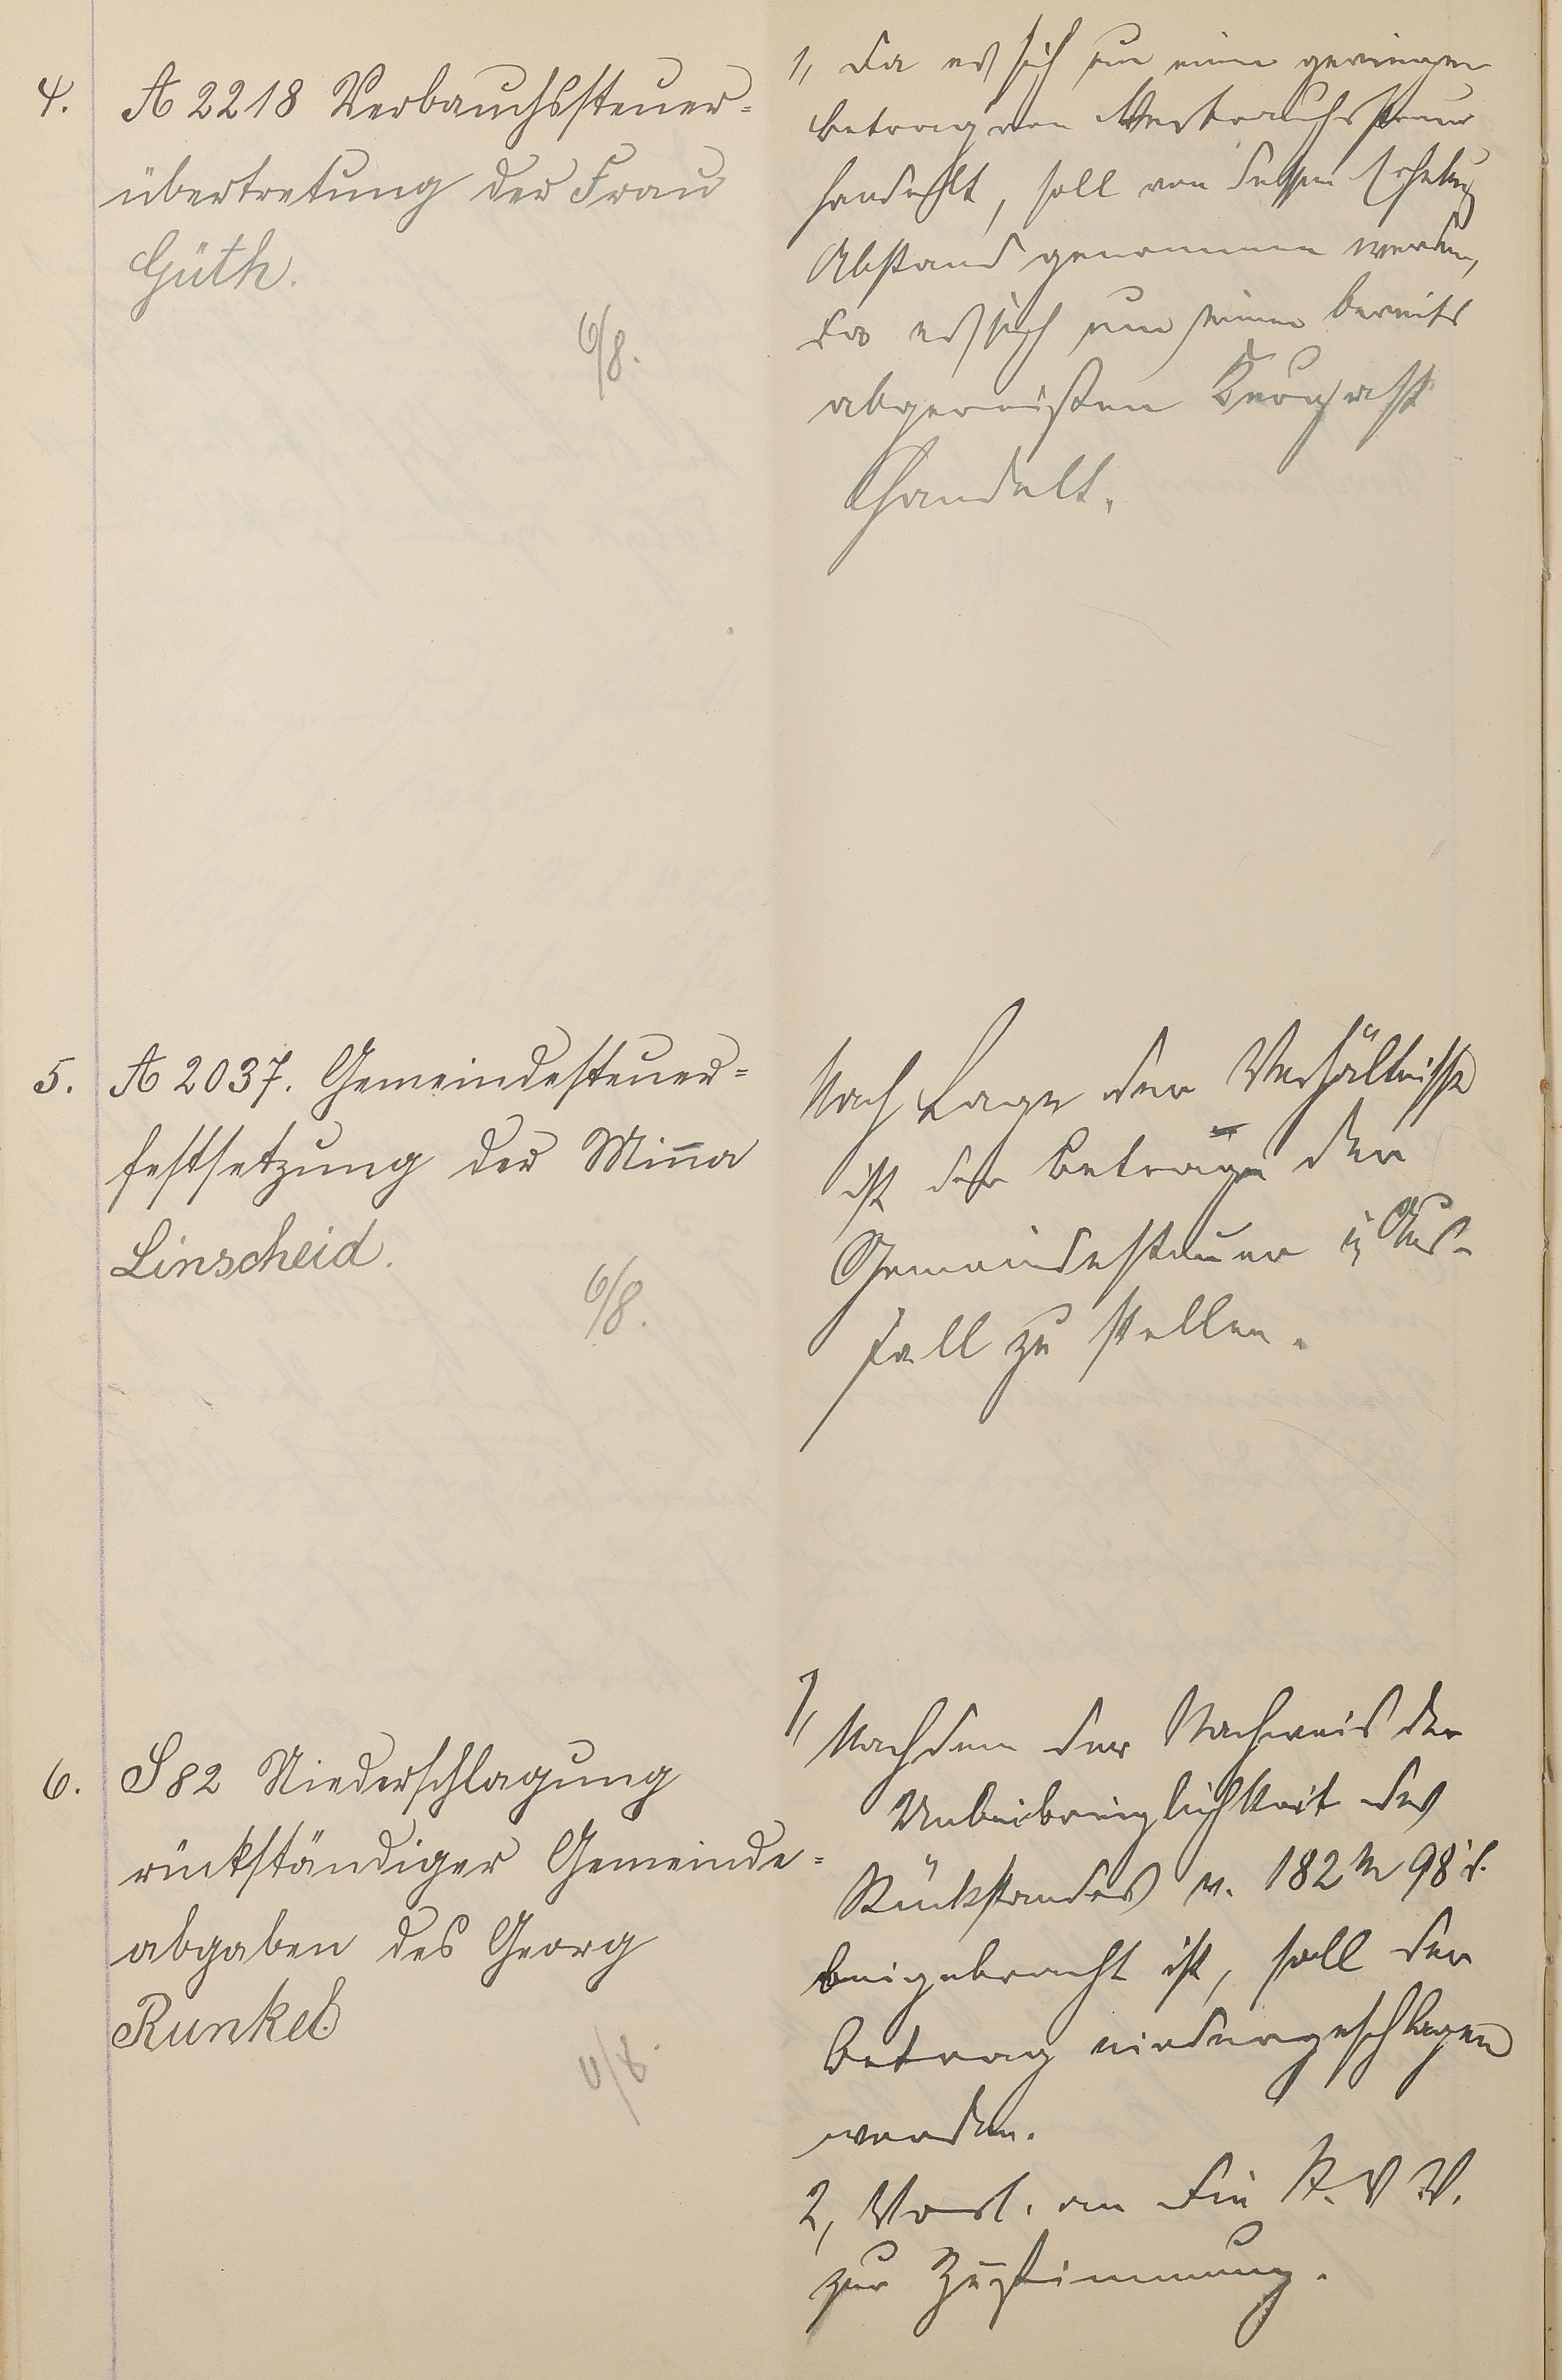 4. A 2218 Verbauchssteuer=
übertretung der Frau
Güth.
6/8.
1, Da es sich um einen geringen
Betrag von Verbrauchssteuer
handelt, soll von dessen Erhebung
Abstand genommen werden,
da es sich um einen bereits
abgereisten Kurgast
handelt.
5. A 2037. Gemeindesteuer=
festsetzung der Miña
Linscheid.
6/8.
Nach Lage der Verhältnisse
ist der Betrag der
Gemeindesteuer in Aus-
fall zu stellen.
6. S 82 Niederschlagung
rückständiger Gemeinde=
abgaben des Georg
Runkel.
6/8.
1, Nachdem der Nachweis der
Unbeibringlichkeit des
Rückstandes v. 182 M 98 d.
beigebracht ist, soll der
Betrag niedergeschlagen
werden.
2, Vorl. an die St. V V.
zur Zustimmung.